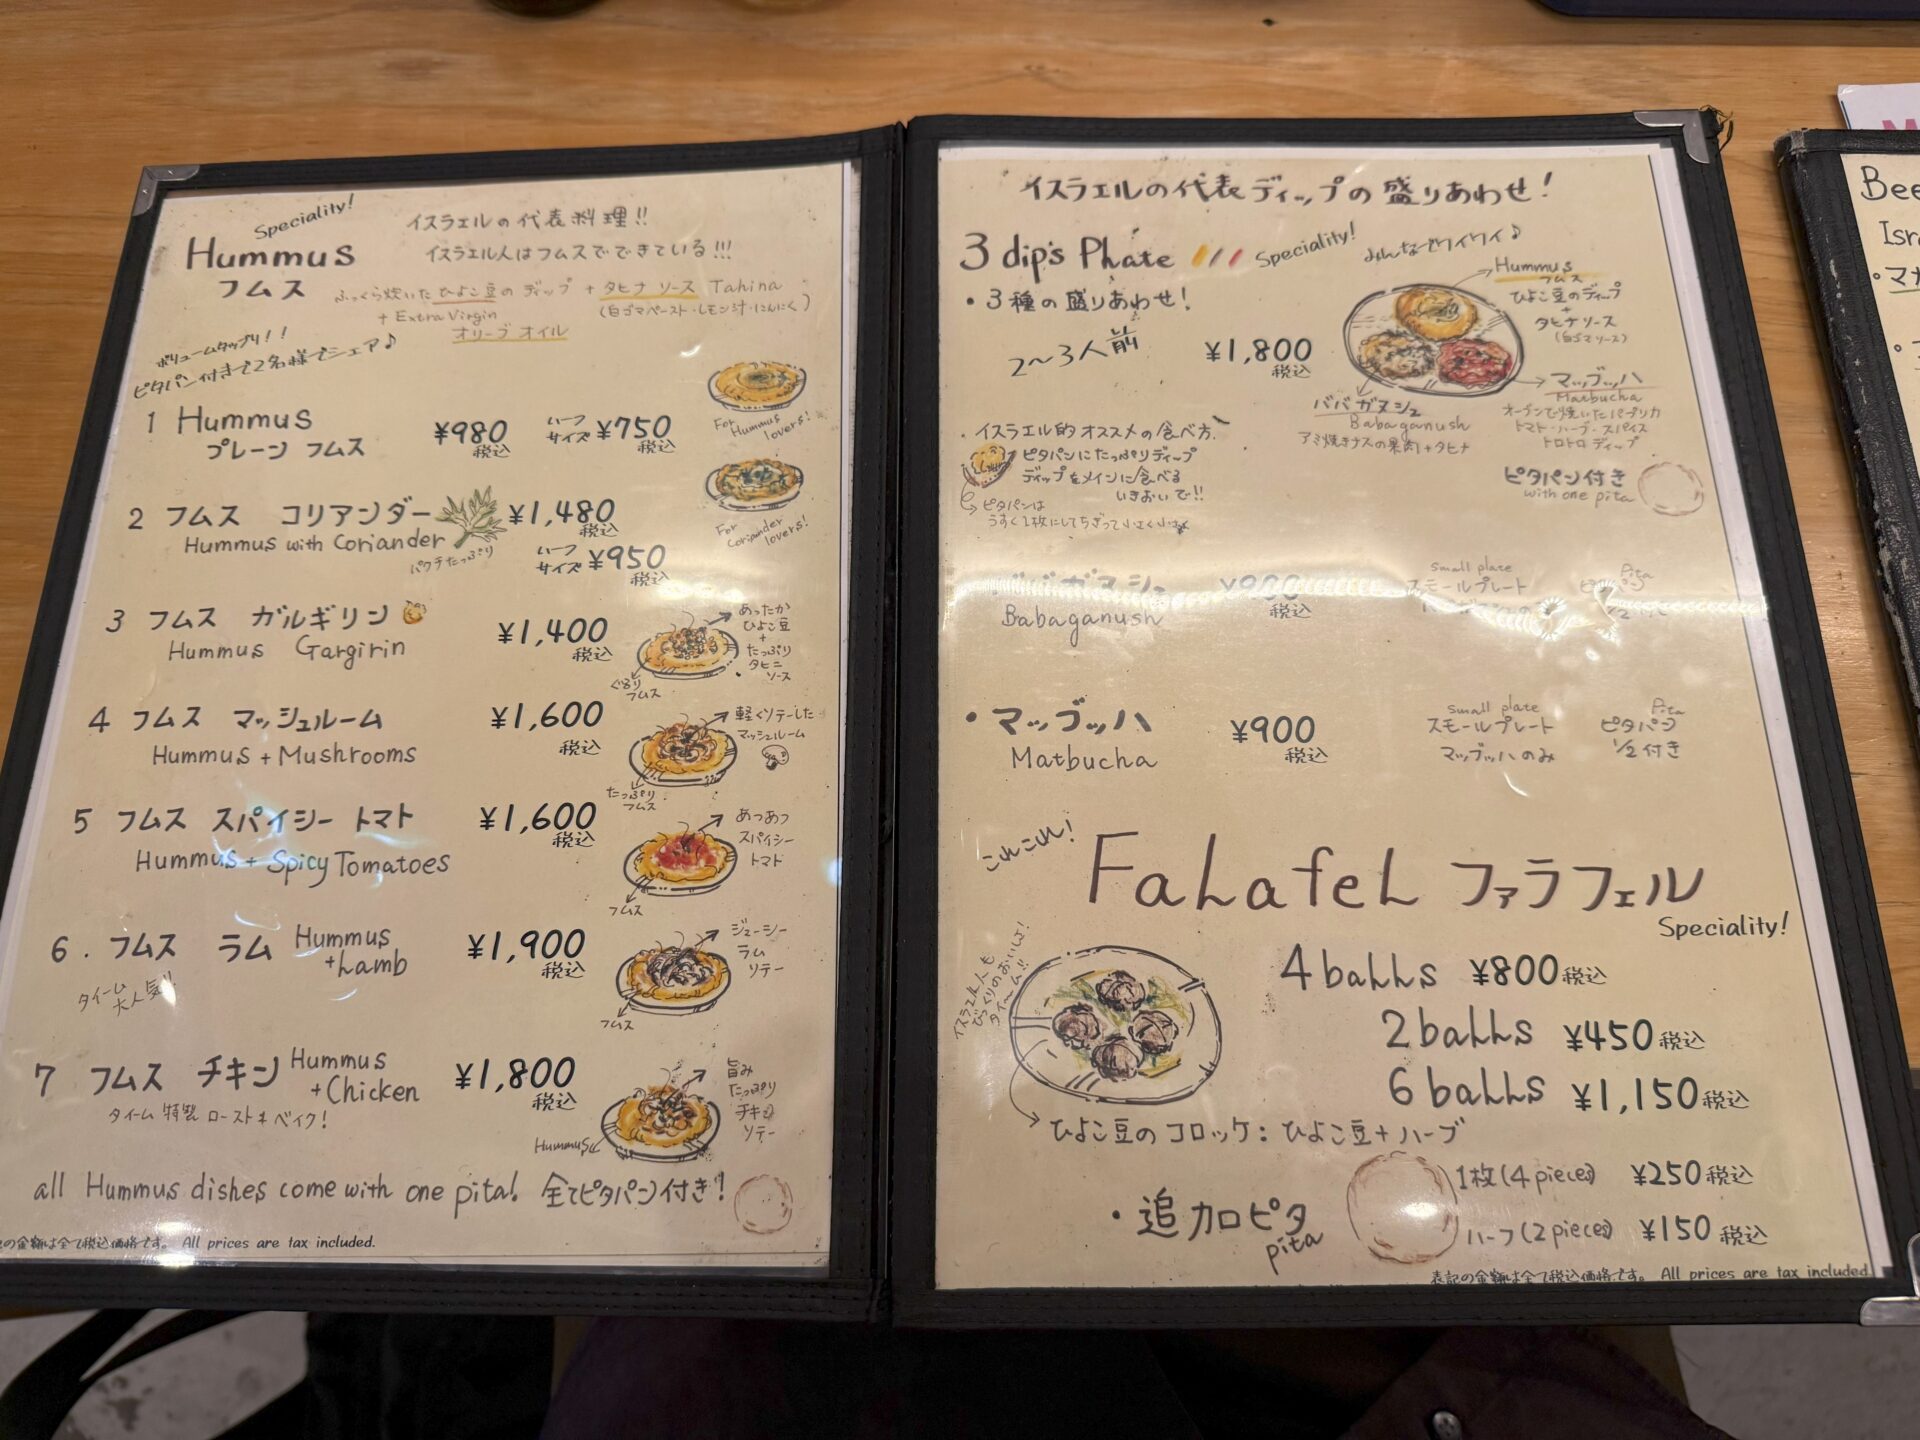 Speciality!
Hummus
フムス
イスラエルの代表料理!!
イスラエル人はフムスでできている!!!
ふっくら炊いたひよこ豆のディップ + タヒナソース Tahina
+ Extra Virgin
オリーブオイル
(白ゴマペースト・レモン汁・にんにく)
ボリュームタップリ!!
ピタパン付きで2名様でシェア♪
1 Hummus ¥980 税込 ハーフサイズ ¥750 税込
プレーン フムス
For Hummus lovers!
2 フムス コリアンダー ¥1,480 税込
Hummus with Coriander
パクチたっぷり
ハーフサイズ ¥950 税込
For Coriander lovers!
3 フムス ガルギリン ¥1,400 税込
Hummus Gargirin
あったか
ひよこ豆
+
たっぷり
タヒニ
ソース
ぐるり
フムス
4 フムス マッシュルーム ¥1,600 税込
Hummus + Mushrooms
軽くソテーした
マッシュルーム
たっぷり
フムス
5 フムス スパイシー トマト ¥1,600 税込
Hummus + Spicy Tomatoes
あつあつ
スパイシー
トマト
フムス
6. フムス ラム Hummus + Lamb ¥1,900 税込
タイム大人気!!
ジューシー
ラム
ソテー
フムス
7 フムス チキン Hummus + Chicken ¥1,800 税込
タイム特製 ロースト&ベイク!
旨み
たっぷり
チキン
ソテー
Hummus
all Hummus dishes come with one pita! 全てピタパン付き!
の金額は全て税込価格です。 All prices are tax included.
イスラエルの代表ディップの盛りあわせ!
3 dip's Plate Speciality! みんなでワイワイ♪
・3種の盛りあわせ!
2〜3人前 ¥1,800 税込
Hummus
フムス
ひよこ豆のディップ
+
タヒナソース
(白ゴマソース)
ババガヌシュ
Babaganush
アミ焼きナスの果肉+タヒナ
マッブッハ
Matbucha
オーブンで焼いたパプリカ
トマト・ハーブ・スパイス
トロトロ ディップ
・イスラエル的オススメの食べ方
ピタパンにたっぷりディップ
ディップをメインに食べる
いきおいで!!
ピタパンは
うすく1枚にしてちぎって小さく
ピタパン付き
with one pita
ババガヌシュ ¥900 税込
Babaganush
small plate
スモールプレート
Pita
・マッブッハ ¥900 税込
Matbucha
small plate
スモールプレート
マッブッハのみ
Pita
ピタパン
1/2付き
これこれ!
Falafel ファラフェル
Speciality!
イスラエル人も
びっくりのおいしい!
タイーム!!
4 balls ¥800 税込
2 balls ¥450 税込
6 balls ¥1,150 税込
ひよこ豆のコロッケ: ひよこ豆+ハーブ
・追加ピタ
pita
1枚(4 pieces) ¥250 税込
ハーフ(2 pieces) ¥150 税込
表記の金額は全て税込価格です。 All prices are tax included.
Bee
Isr
・マ